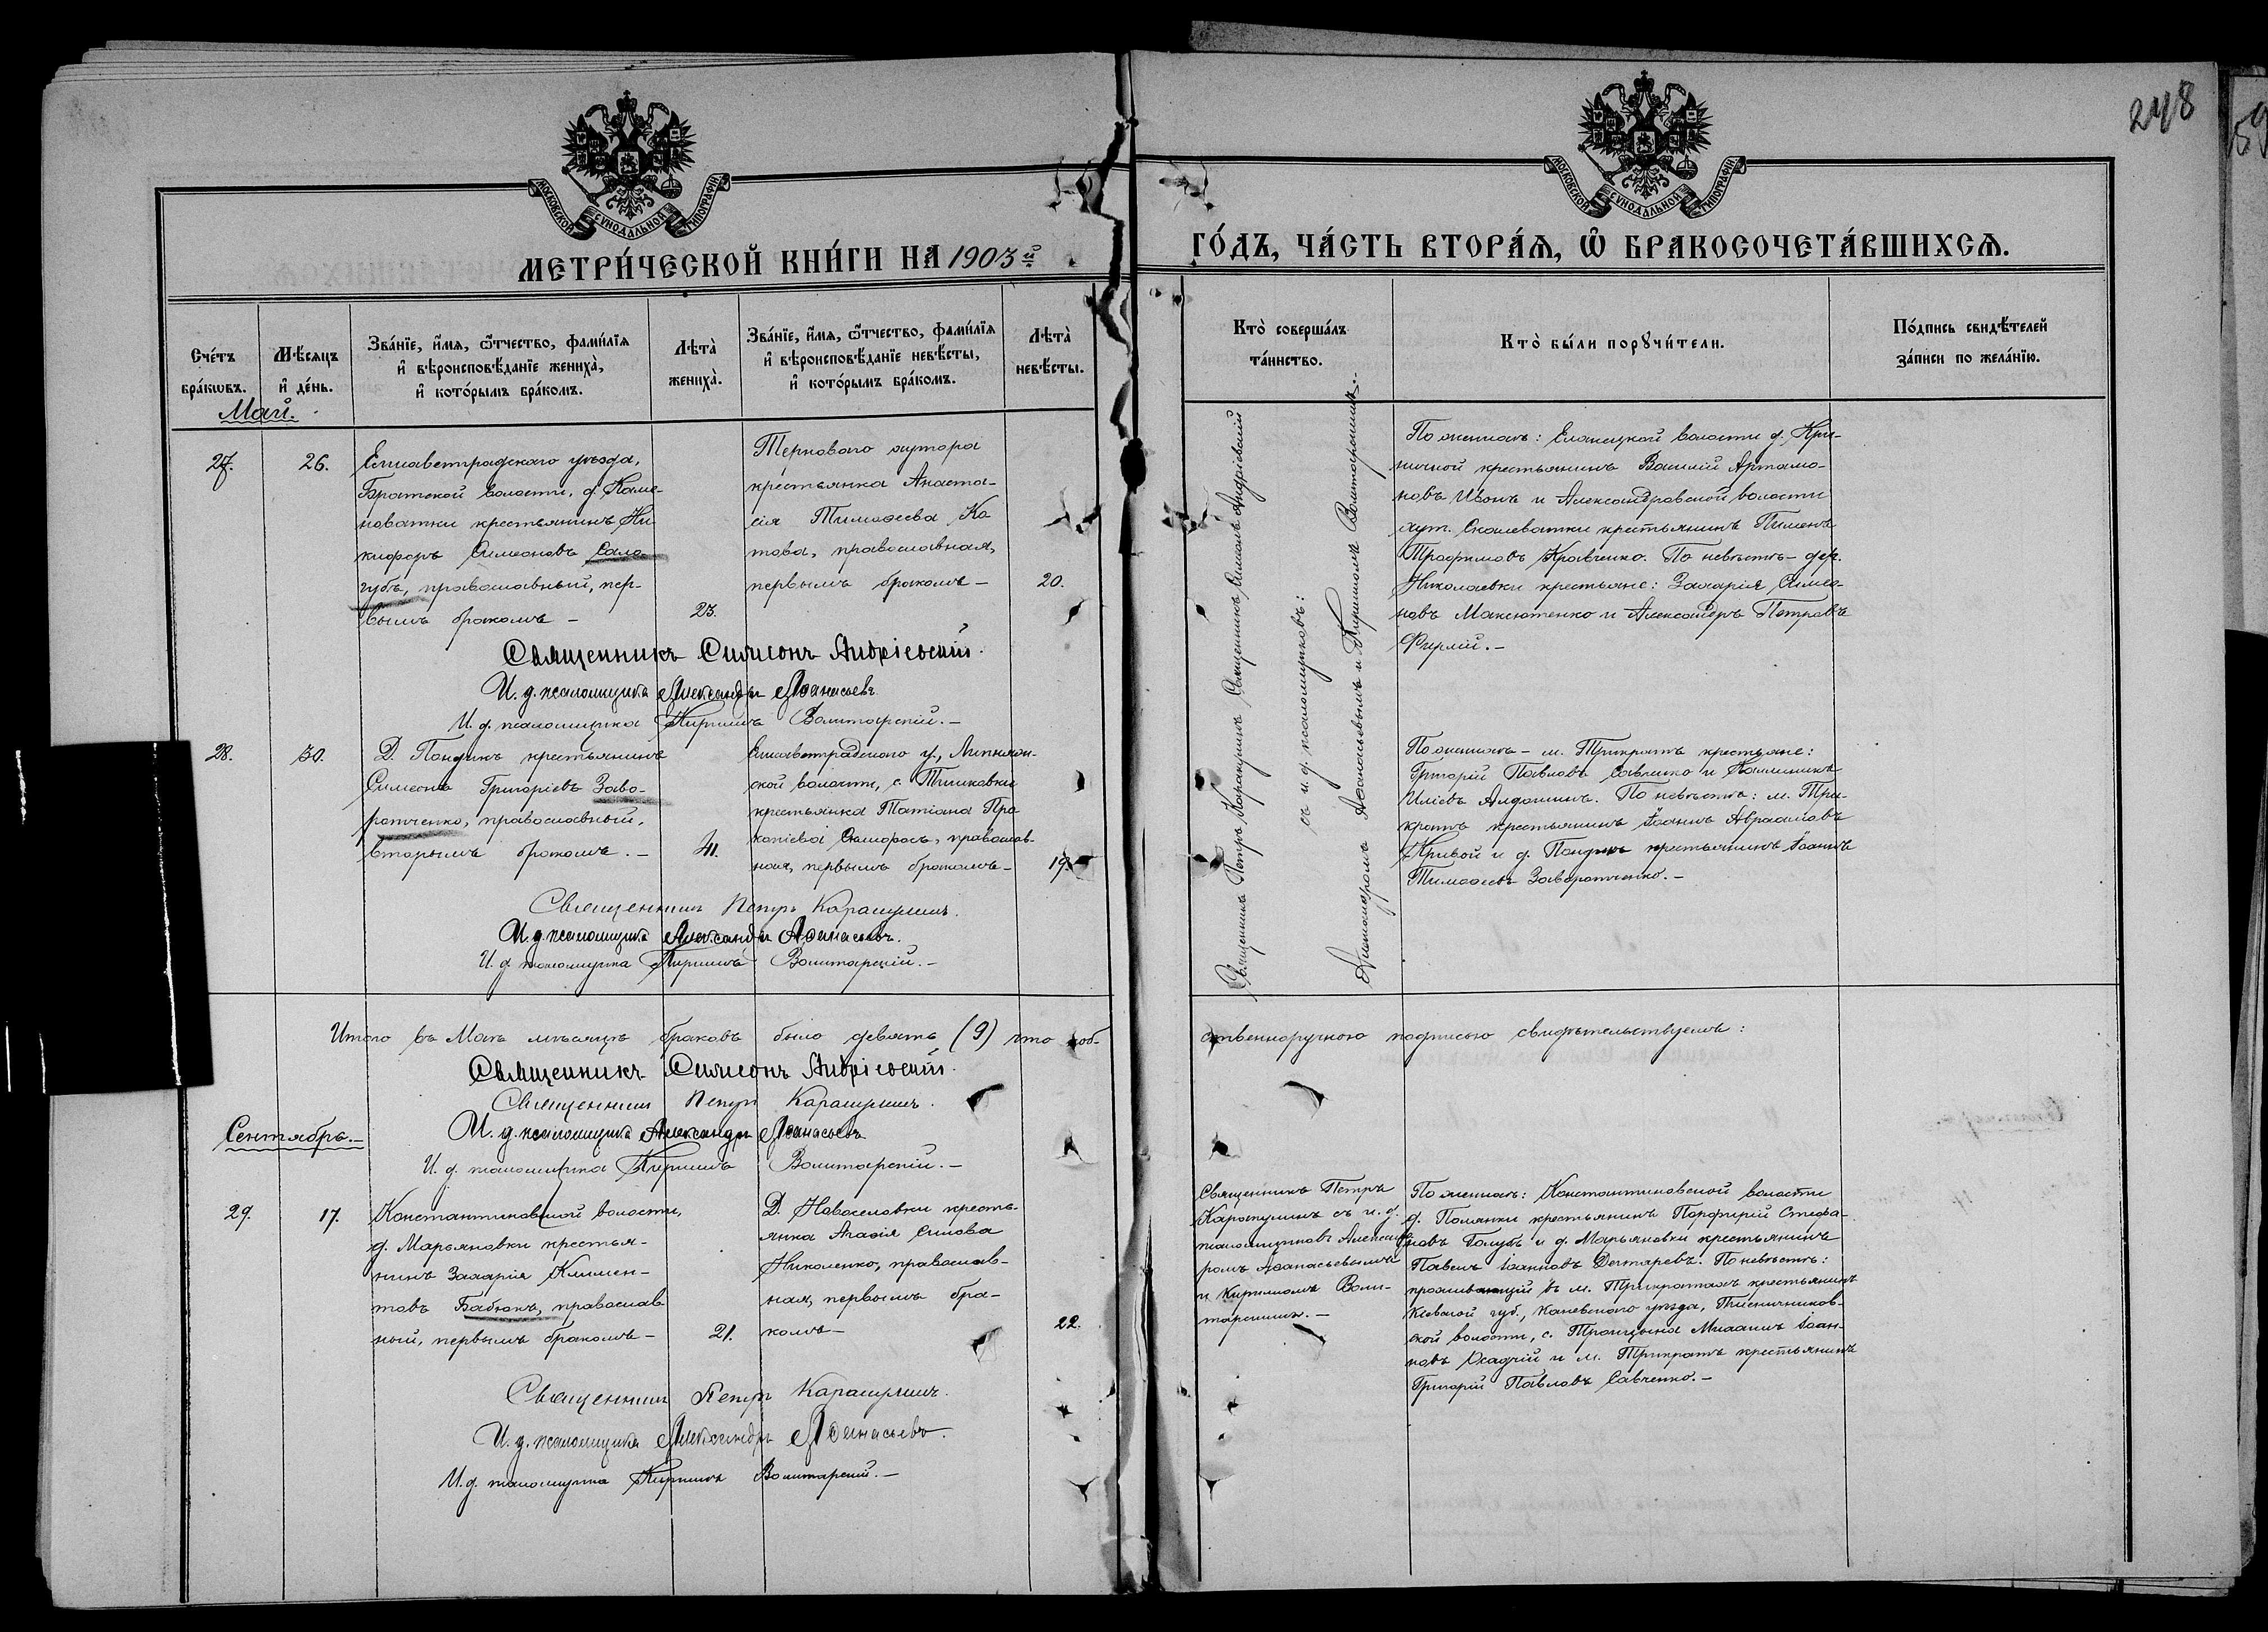 248
59
МОСКОВСКОЙ СУНОДАЛЬНОЙ ТИПОГРАФІИ
МОСКОВСКОЙ СУНОДАЛЬНОЙ ТИПОГРАФІИ
МЕТРИ́ЧЕСКОЙ КНИ́ГИ НА 1903й
ГО́ДЪ, ЧА́СТЬ ВТОРА́Я, Ѡ БРАКОСОЧЕТА́ВШИХСЯ.
Сче́тъ бра́кѡвъ.
Мѣ́сяцъ и҆ де́нь.
Зва́нїе, и҆́мя, ѻ҆́тчество, фами́лїя
и҆ вѣроисповѣ́данїе жениха̀,
и҆ кото́рымъ бра́комъ.
Лѣта̀ жениха̀.
Зва́нїе, и҆́мя, ѻ҆́тчество, фами́лїя
и҆ вѣроисповѣ́данїе невѣ́сты,
и҆ кото́рымъ бра́комъ.
Лѣта̀ невѣ́сты.
Кто̀ соверша́лъ та́инство.
Кто̀ бы́ли порꙋчи́тели.
По́дпись свидѣ́телей
за́писи по жела́нїю.
Май.
27.
26.
Елисаветградскаго уѣзда,
Братской волости, д. Каме-
новатки крестьянинъ Ни
кифоръ Симеоновъ Сало
губъ, православный, пер-
вымъ бракомъ –
23.
Терноваго хутора
крестьянка Анаста-
сія Тимоѳеева Ко
това, православная,
первымъ бракомъ –
20.
Священникъ Симеонъ Андріевскій.
И. д. псаломщика Александръ Аѳанасьевъ
И. д. псаломщика Кириллъ Волитарскій. –
Священникъ Петръ Каракулинъ Священникъ Симеонъ Андріевскій
съ и. д. псаломщиковъ:
Александромъ Аѳанасьевымъ и Кирилломъ Волитарскимъ.
По женихѣ: Еланецкой волости д. Кри-
ничной крестьянинъ Василій Артамо-
новъ Ивонъ и Александровской волости
хут. Скалеватки крестьянинъ Пименъ
Трофимовъ Кравченко. По невѣстѣ – дер.
Николаевки крестьяне: Захарія Симео-
новъ Максютенко и Александръ Петровъ
Фирлій. –
28.
30.
Д. Пондикъ крестьянинъ
Симеонъ Григоріевъ Заво-
ротченко, православный,
вторымъ бракомъ. –
41.
Елисаветградскаго у., Липняж-
ской волости, с. Тишковки
крестьянка Татіана Про
копіева Скліфосъ, православ-
ная, первымъ бракомъ –
19.
По женихѣ – м. Трикратъ крестьяне:
Григорій Павловъ Савченко и Каллиникъ
Иліевъ Алдошинъ. По невѣстѣ: м. Три-
кратъ крестьянинъ Іоаннъ Авраамовъ
Кривой и д. Пондикъ крестьянинъ Іоаннъ
Тимоѳеевъ Заворотченко. –
Священникъ Петръ Каракулинъ.
И. д. псаломщика Александръ Аѳанасьевъ.
И. д. псаломщика Кириллъ Волитарскій. –
Итого въ Маѣ мѣсяцѣ браковъ было девять (9) что соб-
ственноручною подписью свидѣтельствуемъ:
Священникъ Симеонъ Андріевскій.
Священникъ Петръ Каракулинъ.
И. д. псаломщика Александръ Аѳанасьевъ
И. д. псаломщика Кириллъ Волитарскій. –
Сентябрь. –
29.
17.
Константиновской волости,
д. Марьяновки крестья-
нинъ Захарія Климен-
товъ Бабюкъ, православ
ный, первымъ бракомъ –
21.
Д. Новоселовки кресть-
янка Агаѳія Силова
Николенко, православ-
ная, первымъ бра-
комъ –
22.
Священникъ Петръ
Каракулинъ съ и. д.
псаломщиковъ Александ
ромъ Аѳанасьевымъ
и Кирилломъ Воли-
тарскимъ. –
По женихѣ: Константиновской волости
д. Полянки крестьянинъ Порфирій Стефа-
новъ Голубъ и д. Марьяновки крестьянинъ
Павелъ Іоанновъ Дехтяревъ. По невѣстѣ:
проживающій въ м. Трикратахъ крестьянинъ
Кіевской губ., Каневскаго уѣзда, Пшеничников-
ской волости, с. Трощына Михаилъ Іоан-
новъ Осадчій и м. Трикратъ крестьянинъ
Григорій Павловъ Савченко. –
Священникъ Петръ Каракулинъ.
И. д. псаломщика Александръ Аѳанасьевъ.
И. д. псаломщика Кириллъ Волитарскій. –